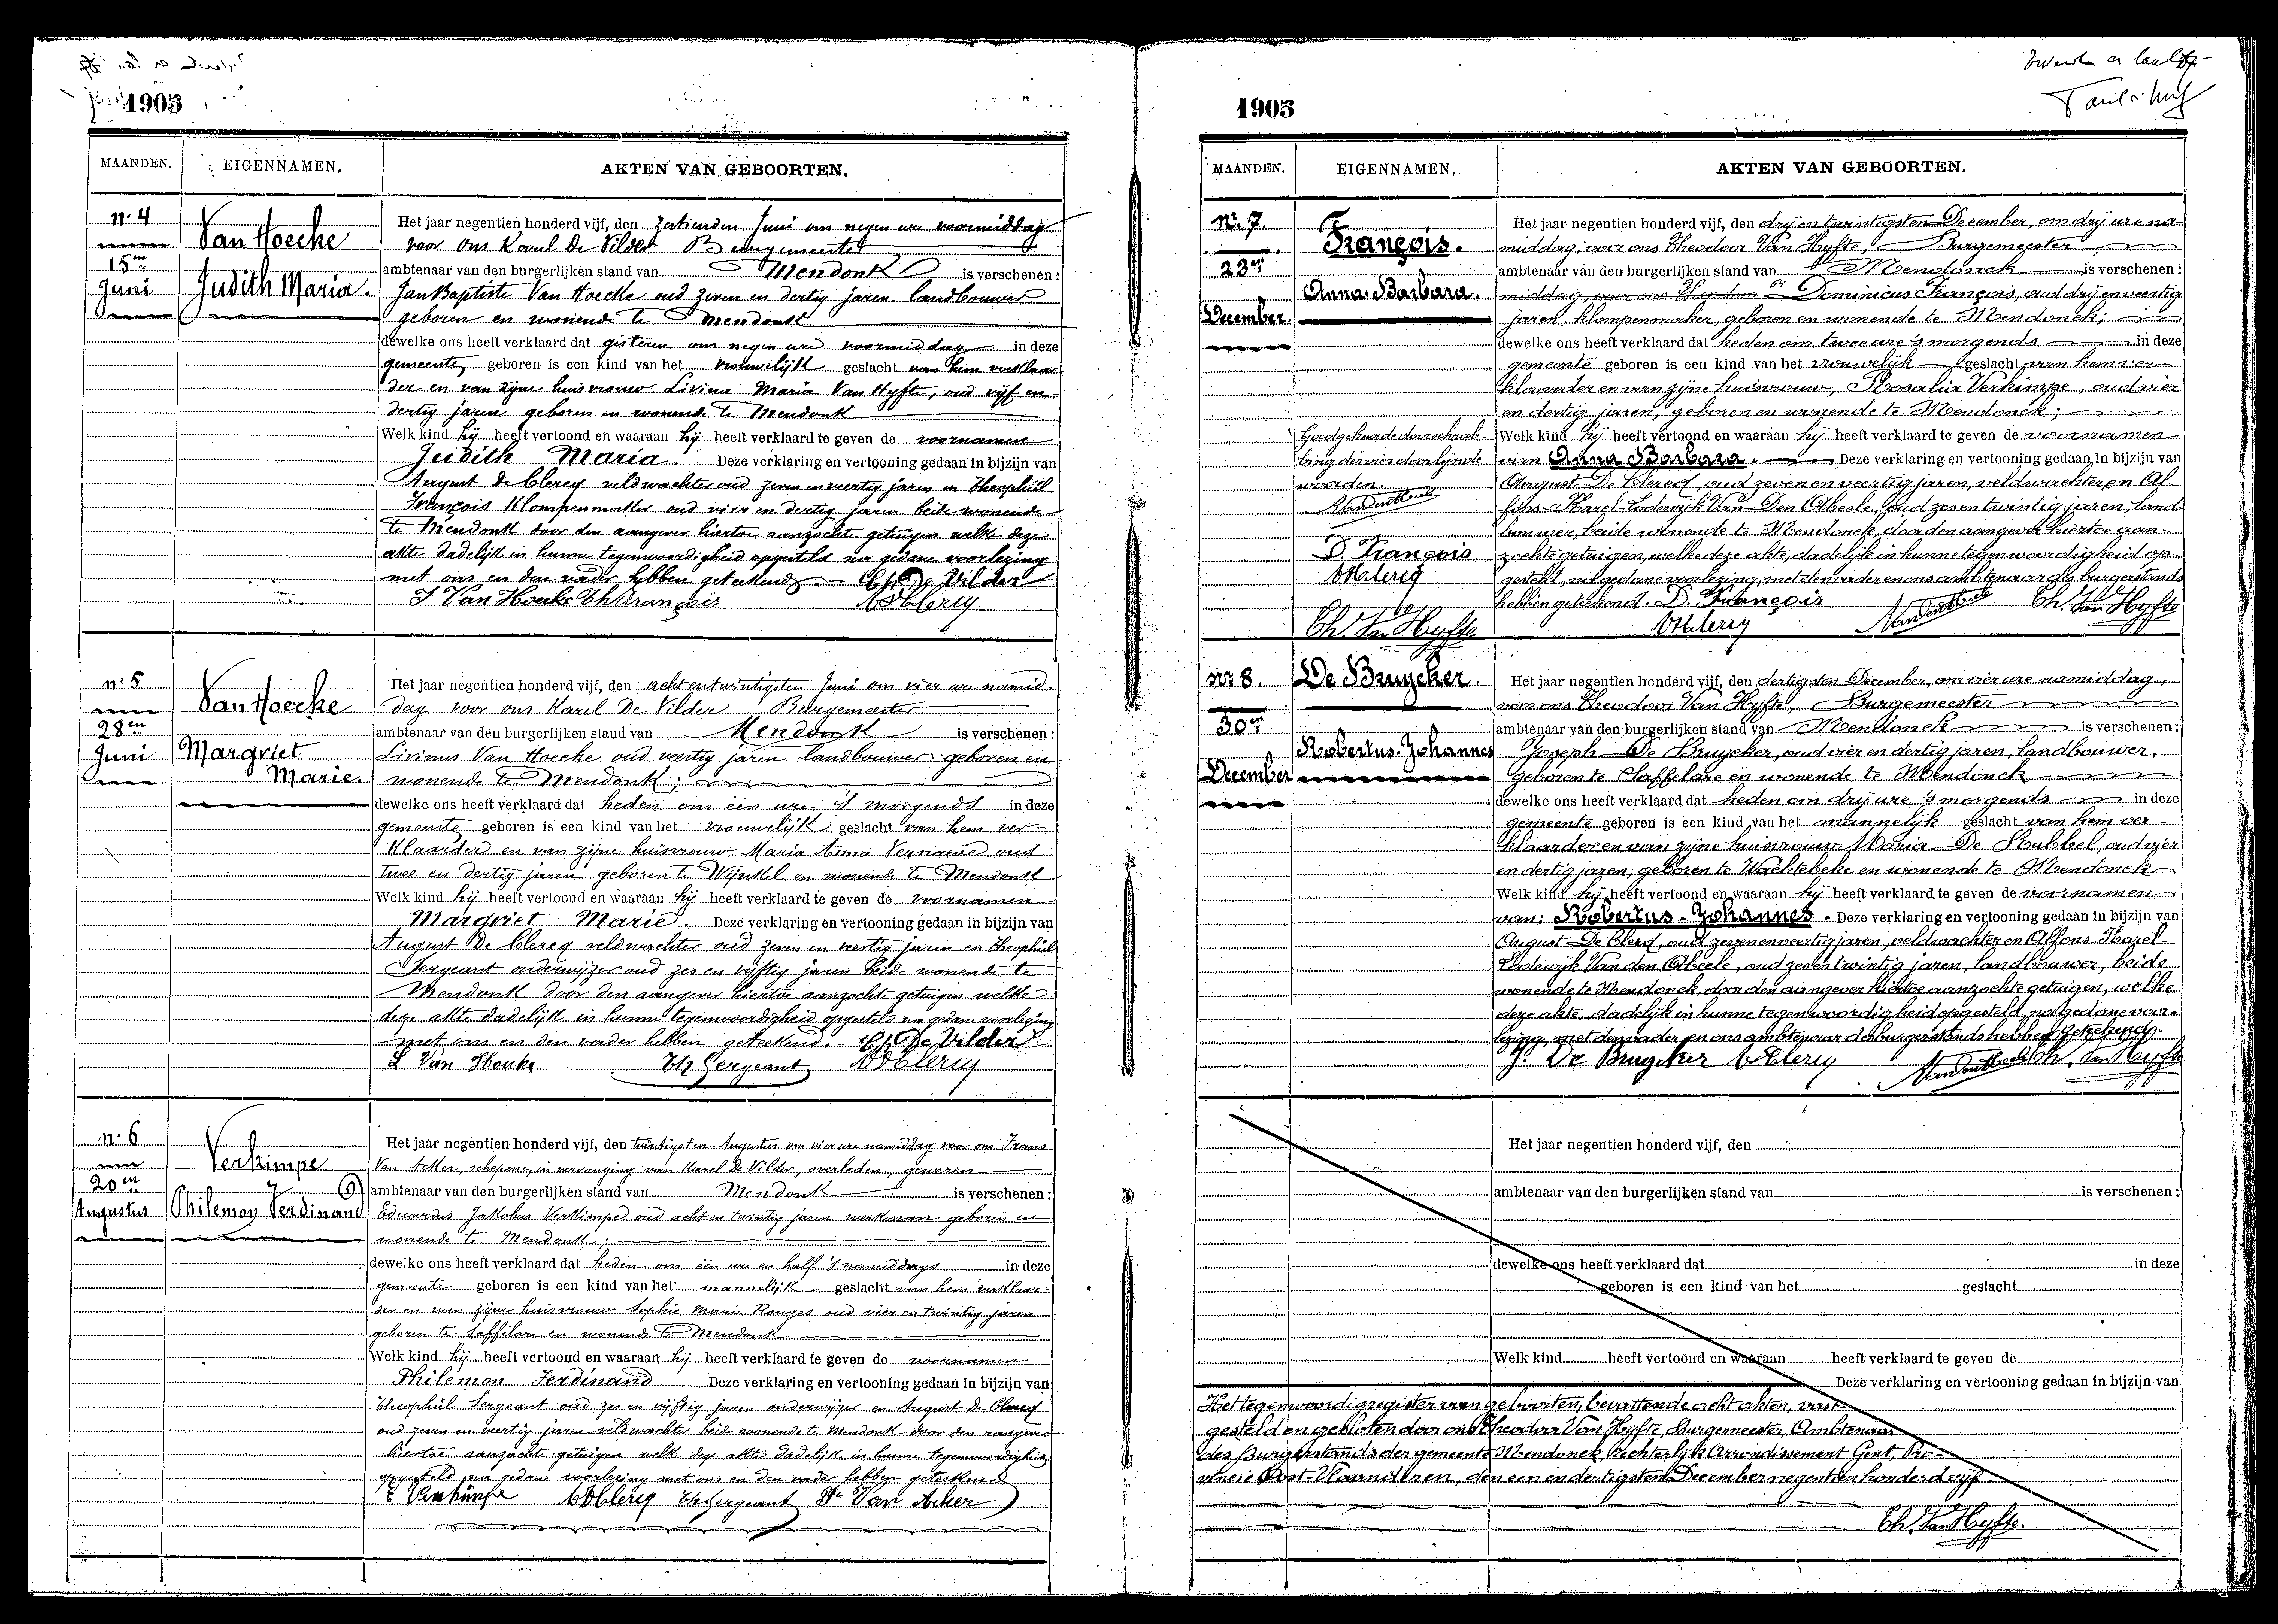 1905
MAANDEN. EIGENNAMEN. AKTEN VAN GEBOORTEN.
n. 4
15en
Juni
Van Hoecke
Judith Maria.
Het jaar negentien honderd vijf, den zestienden Juni om negen ure voormiddag
voor ons Karel De Vilder Burgemeester
ambtenaar van den burgerlijken stand van Mendonk is verschenen:
Jan Baptiste Van Hoecke oud zeven en dertig jaren landbouwer
geboren en wonende te Mendonk
dewelke ons heeft verklaard dat gisteren om negen ure voormiddag in deze
gemeente geboren is een kind van het vrouwelijk geslacht van hem verklaar
der en van zijne huisvrouw Livina Maria Van Hyfte, oud vijf en
dertig jaren geboren en wonende te Mendonk
Welk kind hij heeft vertoond en waaraan hij heeft verklaard te geven de voornamen
Judith Maria. Deze verklaring en vertooning gedaan in bijzijn van
August de Clercq veldwachter oud zeven en veertig jaren en Theophiel
François klompenmaker oud vier en dertig jaren beide wonende
te Mendonk door den aangever hiertoe aanzochte getuigen welke deze
akte dadelijk in hunne tegenwoordigheid opgesteld na gedane voorlezing
met ons en den vader hebben geteekend Ch. De Vilder
J Van Hoecke Th François ADClercq
n. 5
28en
Juni
Van Hoecke
Margriet
Marie.
Het jaar negentien honderd vijf, den acht en twintigsten Juni om vier ure namid
dag voor ons Karel De Vilder Burgemeester
ambtenaar van den burgerlijken stand van Mendonk is verschenen:
Livinus Van Hoecke oud veertig jaren landbouwer geboren en
wonende te Mendonk;
dewelke ons heeft verklaard dat heden om één ure 's morgends in deze
gemeente geboren is een kind van het vrouwelijk geslacht van hem ver-
klaarder en van zijne huisvrouw Maria Anna Vernaeve oud
twee en dertig jaren geboren te Wynkel en wonende te Mendonk
Welk kind hij heeft vertoond en waaraan hij heeft verklaard te geven de voornamen
Margriet Marie. Deze verklaring en vertooning gedaan in bijzijn van
August De Clercq veldwachter oud zeven en veertig jaren en Theophiel
Sergeant onderwijzer oud zes en vijftig jaren beide wonende te
Mendonk door den aangever hiertoe aanzochte getuigen welke
deze akte dadelijk in hunne tegenwoordigheid opgesteld na gedane voorlezing
met ons en den vader hebben geteekend. Ch. De Vilder
L Van Hoecke Th Sergeant ADClercq
n. 6
20en
Augustus
Verkimpe
Philemon Ferdinand
Het jaar negentien honderd vijf, den twintigsten Augustus om vier ure namiddag voor ons Frans
Van Acker, schepene, in vervanging van Karel De Vilder, overleden, geweren
ambtenaar van den burgerlijken stand van Mendonk is verschenen:
Eduardus Jakobus Verkimpe oud acht en twintig jaren werkman geboren en
wonende te Mendonk;
dewelke ons heeft verklaard dat heden om één ure en half 's namiddags in deze
gemeente geboren is een kind van het mannelijk geslacht van hem verklaar-
der en van zijne huisvrouw Sophie Marie oud vier en twintig jaren
geboren te Saffelare en wonende te Mendonk
Welk kind hij heeft vertoond en waaraan hij heeft verklaard te geven de voornamen
Philemon Ferdinand Deze verklaring en vertooning gedaan in bijzijn van
Theophiel Sergeant oud zes en vijftig jaren onderwijzer en August De Clercq
oud zeven en veertig jaren veldwachter beide wonende te Mendonk door den aangever
hiertoe aanzochte getuigen welke deze akte dadelijk in hunne tegenwoordigheid
opgesteld na gedane voorlezing met ons en den vader hebben geteekend
E Verkimpe ADClercq Th Sergeant Fr Van Acker
1905
MAANDEN. EIGENNAMEN. AKTEN VAN GEBOORTEN.
Nr. 7.
23en
December.
François.
Anna-Barbara.
Goedgekeurde doorschrab-
bing der vier doorlijnde
woorden.
D. François
ADClercq
Ch. Van Hyfte
Het jaar negentien honderd vijf, den drij en twintigsten December, om drij ure na-
middag, voor ons Theodoor Van Hyfte, Burgemeester
ambtenaar van den burgerlijken stand van Mendonck is verschenen:
middag, voor ons Theodoor Dominicus François, oud drij en veertig
jaren, klompenmaker, geboren en wonende te Mendonck;
dewelke ons heeft verklaard dat heden om twee ure 's morgends in deze
gemeente geboren is een kind van het vrouwelijk geslacht van hem ver-
klaarder en van zijne huisvrouw, Rosalia Verkimpe, oud vier
en dertig jaren, geboren en wonende te Mendonck;
Welk kind hij heeft vertoond en waaraan hij heeft verklaard te geven de voornamen
van Anna Barbara. Deze verklaring en vertooning gedaan in bijzijn van
August De Clercq, oud zeven en veertig jaren, veldwachter en Al-
fons-Karel-Lodewijk Van Den Abeele, oud zes en twintig jaren, land-
bouwer, beide wonende te Mendonck, door den aangever hiertoe aan-
zochte getuigen, welke deze akte, dadelijk in hunne tegenwoordigheid op-
gesteld, na gedane voorlezing, met den vader en ons ambtenaar des burgerstands
hebben geteekend. D. François Ch. Van Hyfte
ADClercq
Nr 8.
30en
December
De Bruycker.
Robertus-Johannes
Het jaar negentien honderd vijf, den dertigsten December, om vier ure namiddag,
voor ons Theodoor Van Hyfte, Burgemeester
ambtenaar van den burgerlijken stand van Mendonck is verschenen:
Jozeph De Bruycker, oud vier en dertig jaren, landbouwer,
geboren te Saffelare en wonende te Mendonck
dewelke ons heeft verklaard dat heden om drij ure 's morgends in deze
gemeente geboren is een kind van het mannelijk geslacht van hem ver-
klaarder en van zijne huisvrouw Maria De Stubbel, oud vier
en dertig jaren, geboren te Wachtebeke en wonende te Mendonck
Welk kind hij heeft vertoond en waaraan hij heeft verklaard te geven de voornamen
van: Robertus-Johannes. Deze verklaring en vertooning gedaan in bijzijn van
August De Clercq, oud zeven en veertig jaren, veldwachter en Alfons-Karel-
Lodewijk Van den Abeele, oud zes en twintig jaren, landbouwer, beide
wonende te Mendonck, door den aangever hiertoe aanzochte getuigen, welke
deze akte, dadelijk in hunne tegenwoordigheid opgesteld, na gedane voor-
lezing, met den vader en ons ambtenaar des burgerstands hebben geteekend.
J. De Bruycker ADClercq Ch. Van Hyfte
Het jaar negentien honderd vijf, den
ambtenaar van den burgerlijken stand van is verschenen:
dewelke ons heeft verklaard dat in deze
geboren is een kind van het geslacht
Welk kind heeft vertoond en waaraan heeft verklaard te geven de
Deze verklaring en vertooning gedaan in bijzijn van
Het tegenwoordig register van geboorten, bevattende acht akten, vast-
gesteld en gesloten door ons Theodoor Van Hyfte, Burgemeester, Ambtenaar
des Burgerstands der gemeente Mendonck, Rechterlijk Arrondissement Gent, Pro-
vincie Oost-Vlaanderen, den een en dertigsten December negentien honderd vijf.
Ch. Van Hyfte.